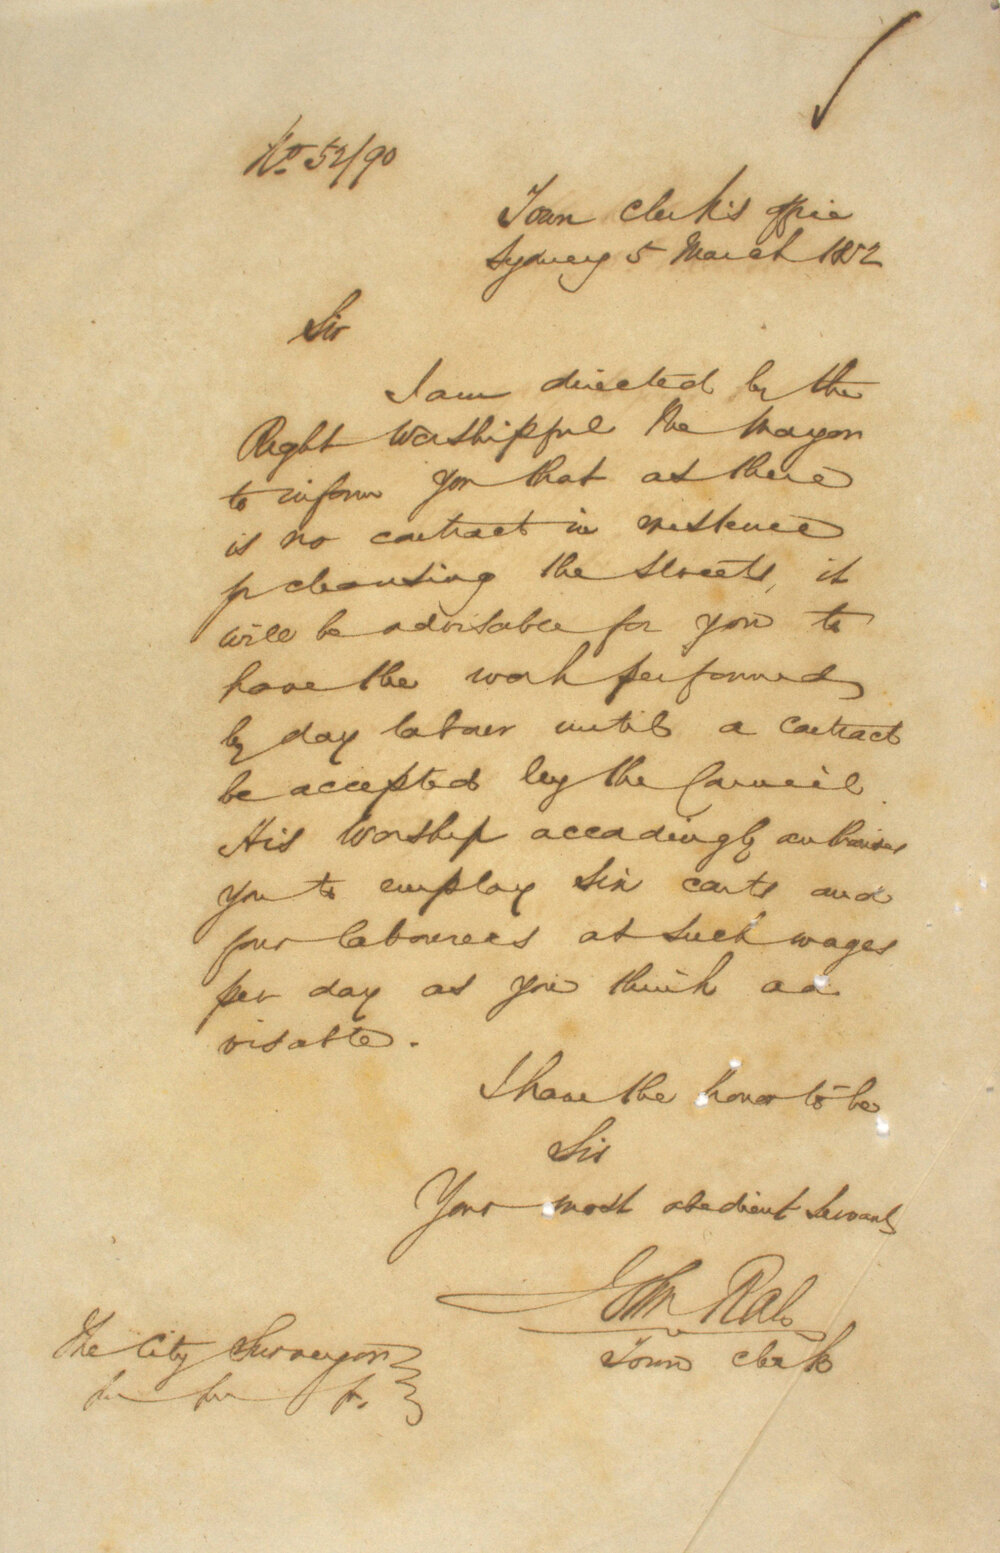 No. 52/90
Town Clerk's Office
Sydney 5 March 1852
Sir
I am directed by the
Right Worshipful the Mayor
to inform you that as there
is no contract in existence
for cleansing the streets, it
will be advisable for you to
have the work performed
by day labour until a contract
be accepted by the Council.
His Worship accordingly authorises
you to employ six carts and
four labourers at such wages
per day as you think ad
visable.
I have the honor to be
Sir
Your most obedient Servant
John Rae
Town Clerk
The City Surveyor